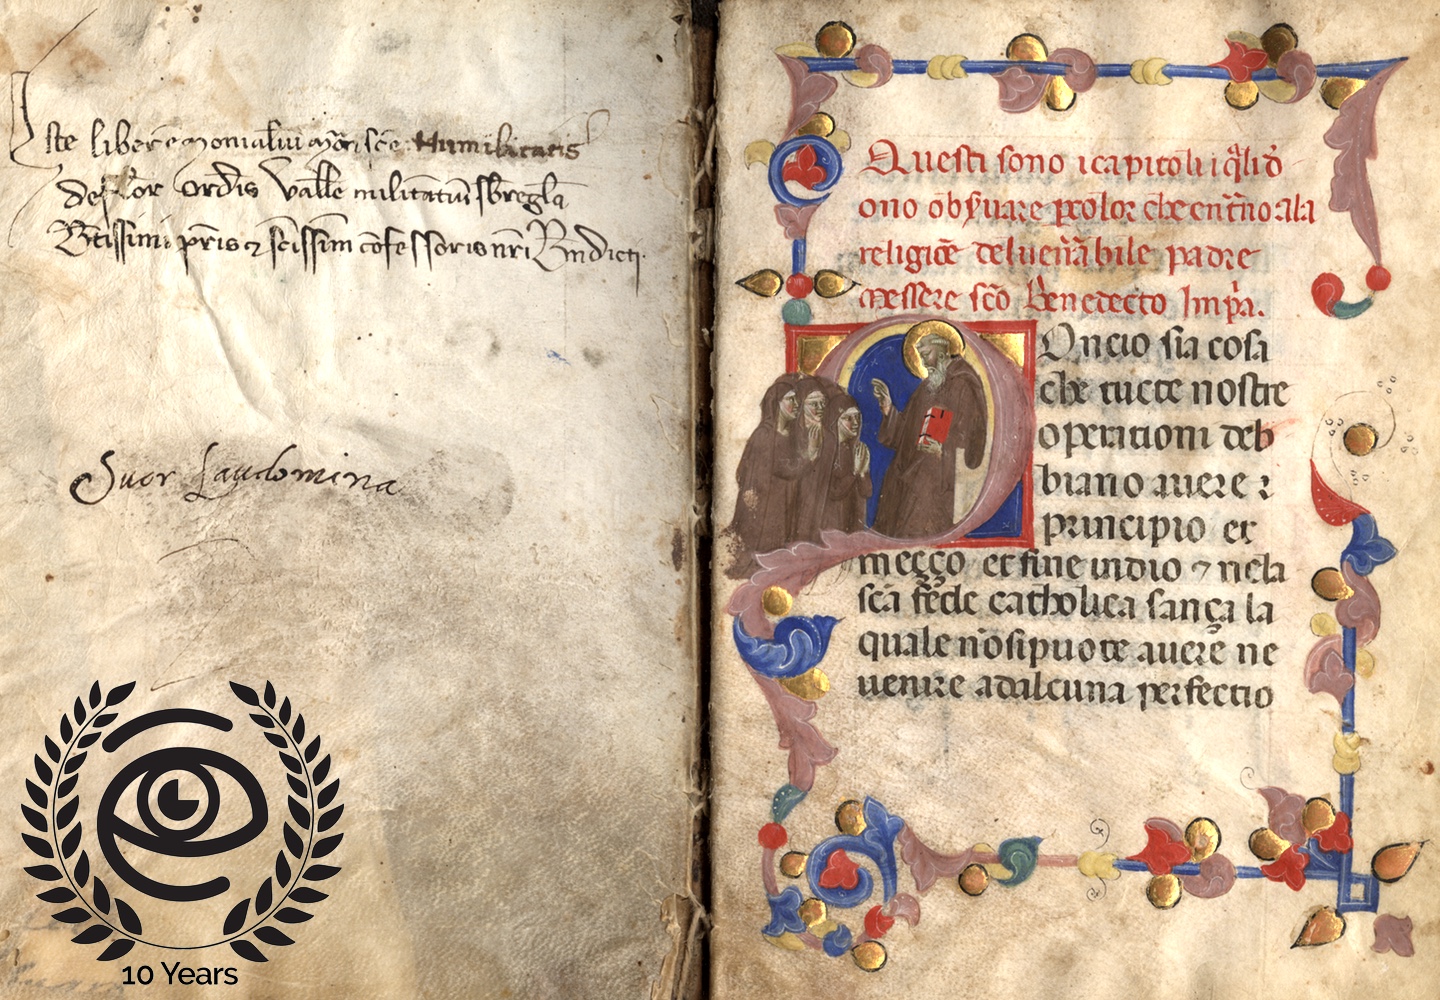 Iste liber e monialiu mo͂n sc̄e Humilitatis
de flor ordīs Valle militātiū sb regla
Btissimi pr̄is ⁊ scissim cōfessoris nr̄i Bndicti
Suor Laudomina
Questi sono i capitoli i q̄li d̄
ono obs̄uare coloꝛ che ent̄no ala
religiōe del uen̄abile padre
messere sc̄o Benedecto Imp̄a.
Oncio sia cosa
che tucte nostre
operationi deb
biano auere ꝛ
principio et
meçço et fine in dio ⁊ nela
sc̄a fede catholica sança la
quale nōsi puote auere ne
uenire ad alcuna perfectio
10 Years